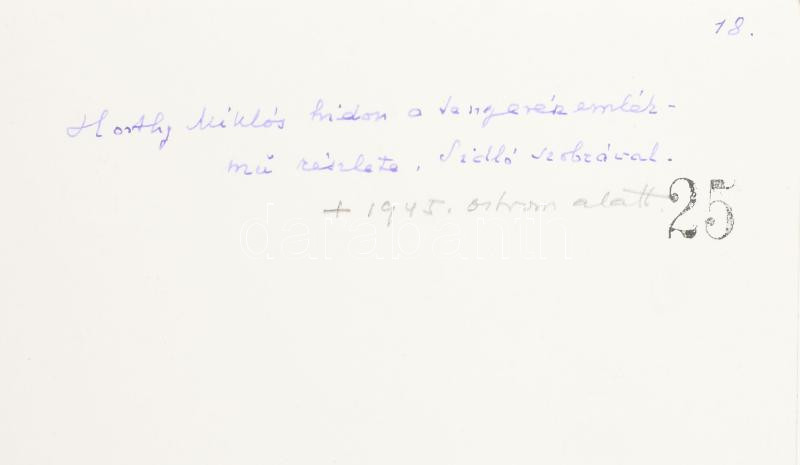 18.
Horthy Miklós hidon a tengerészemlék-
mű részlete, Szidló szobrával.
+ 1945. ostrom alatt.
25
darabanth